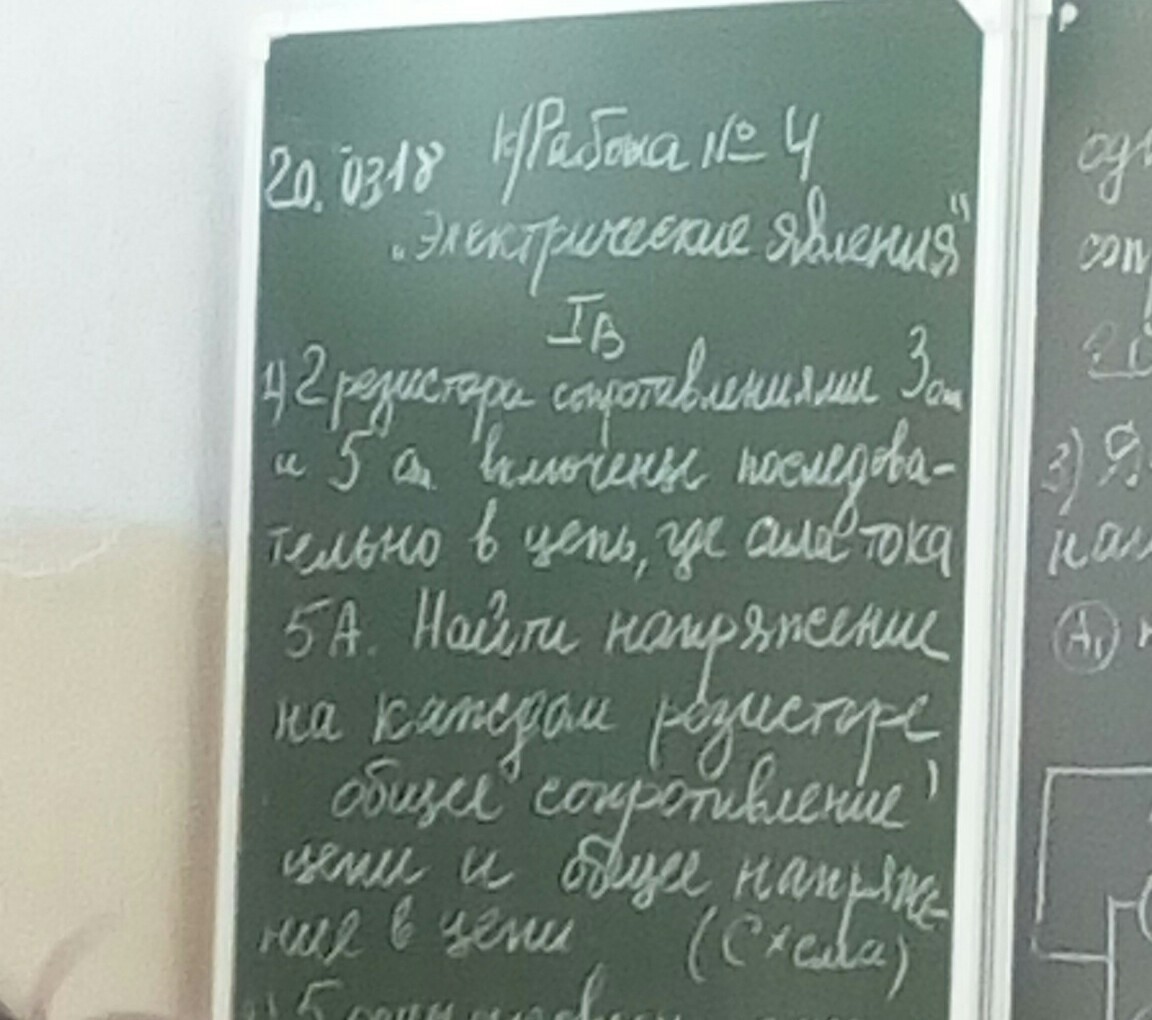 20.0318 К/Работа № 4
„Электрические явления"
I В
1) 2 резистора сопротивлениями 3 ом
и 5 ом включены последова-
тельно в цепь, где сила тока
5А. Найти напряжение
на каждом резисторе,
общее сопротивление
цепи и общее напряже-
ние в цепи (Схема)
5
р
одн
соп
3)
нап
А1